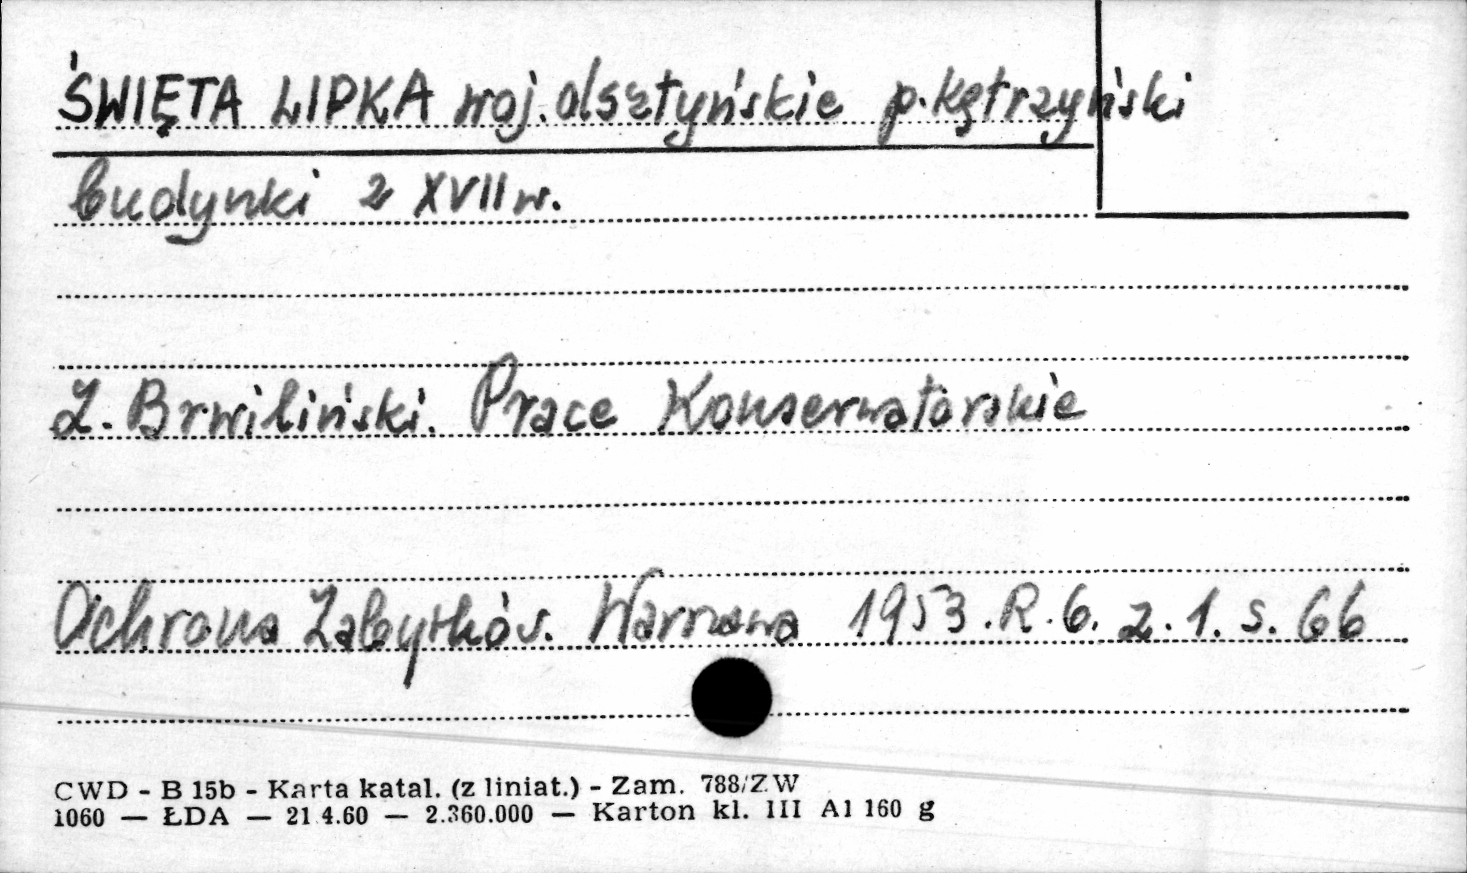 ŚWIĘTA LIPKA woj. olsztyńskie p. kętrzyński
budynki z XVII w.
Z. Brwiliński. Prace Konserwatorskie
Ochrona Zabytków. Warszawa 1953. R. 6. z. 1. s. 66
CWD - B 15b - Karta katal. (z liniat.) - Zam. 788/ZW
1060 — ŁDA — 21.4.60 — 2.360.000 — Karton kl. III A1 160 g